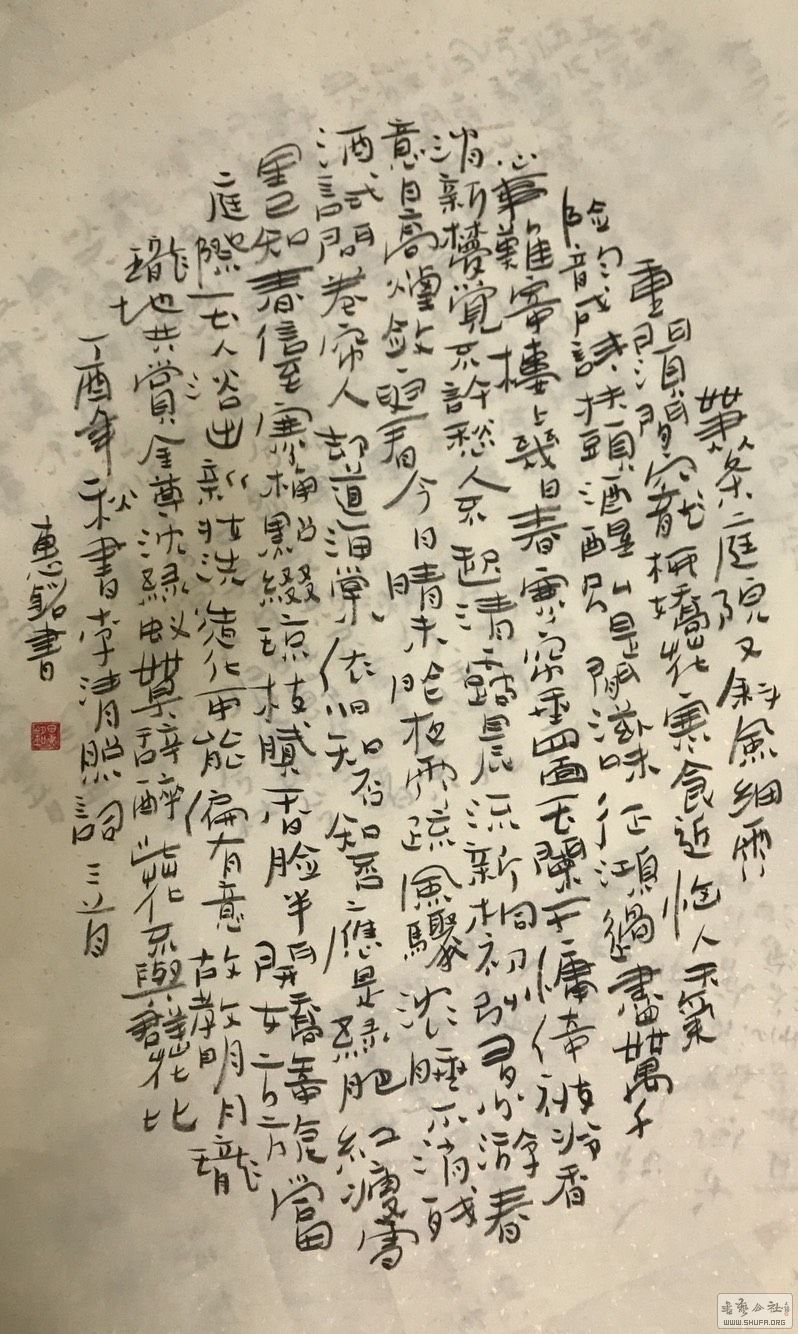 蕭條庭院又斜風細雨
重門須閉寵柳嬌花寒食近惱人天氣
險韻成詩扶頭酒醒別是閒滋味征鴻過盡萬千
心事難寄樓上幾日春寒簾垂四面玉闌干慵倚被冷香
消新夢覺不許愁人不起清露晨流新桐初引多少游春
意日高煙斂更看今日晴未昨夜雨疏風驟沈睡不消殘
酒試問卷簾人却道海棠依旧知否知否應是綠肥紅瘦雪
里已知春信至寒梅點綴琼枝膩香臉半開嬌旖旎當
庭際玉人浴出新妝洗造化可能偏有意故教明月瓏
瓏地共賞金尊沈綠蟻莫辭醉此花不與群花比
丁酉年秋書李清照詞三首
惠銘書
WWW.SHUFA.ORG